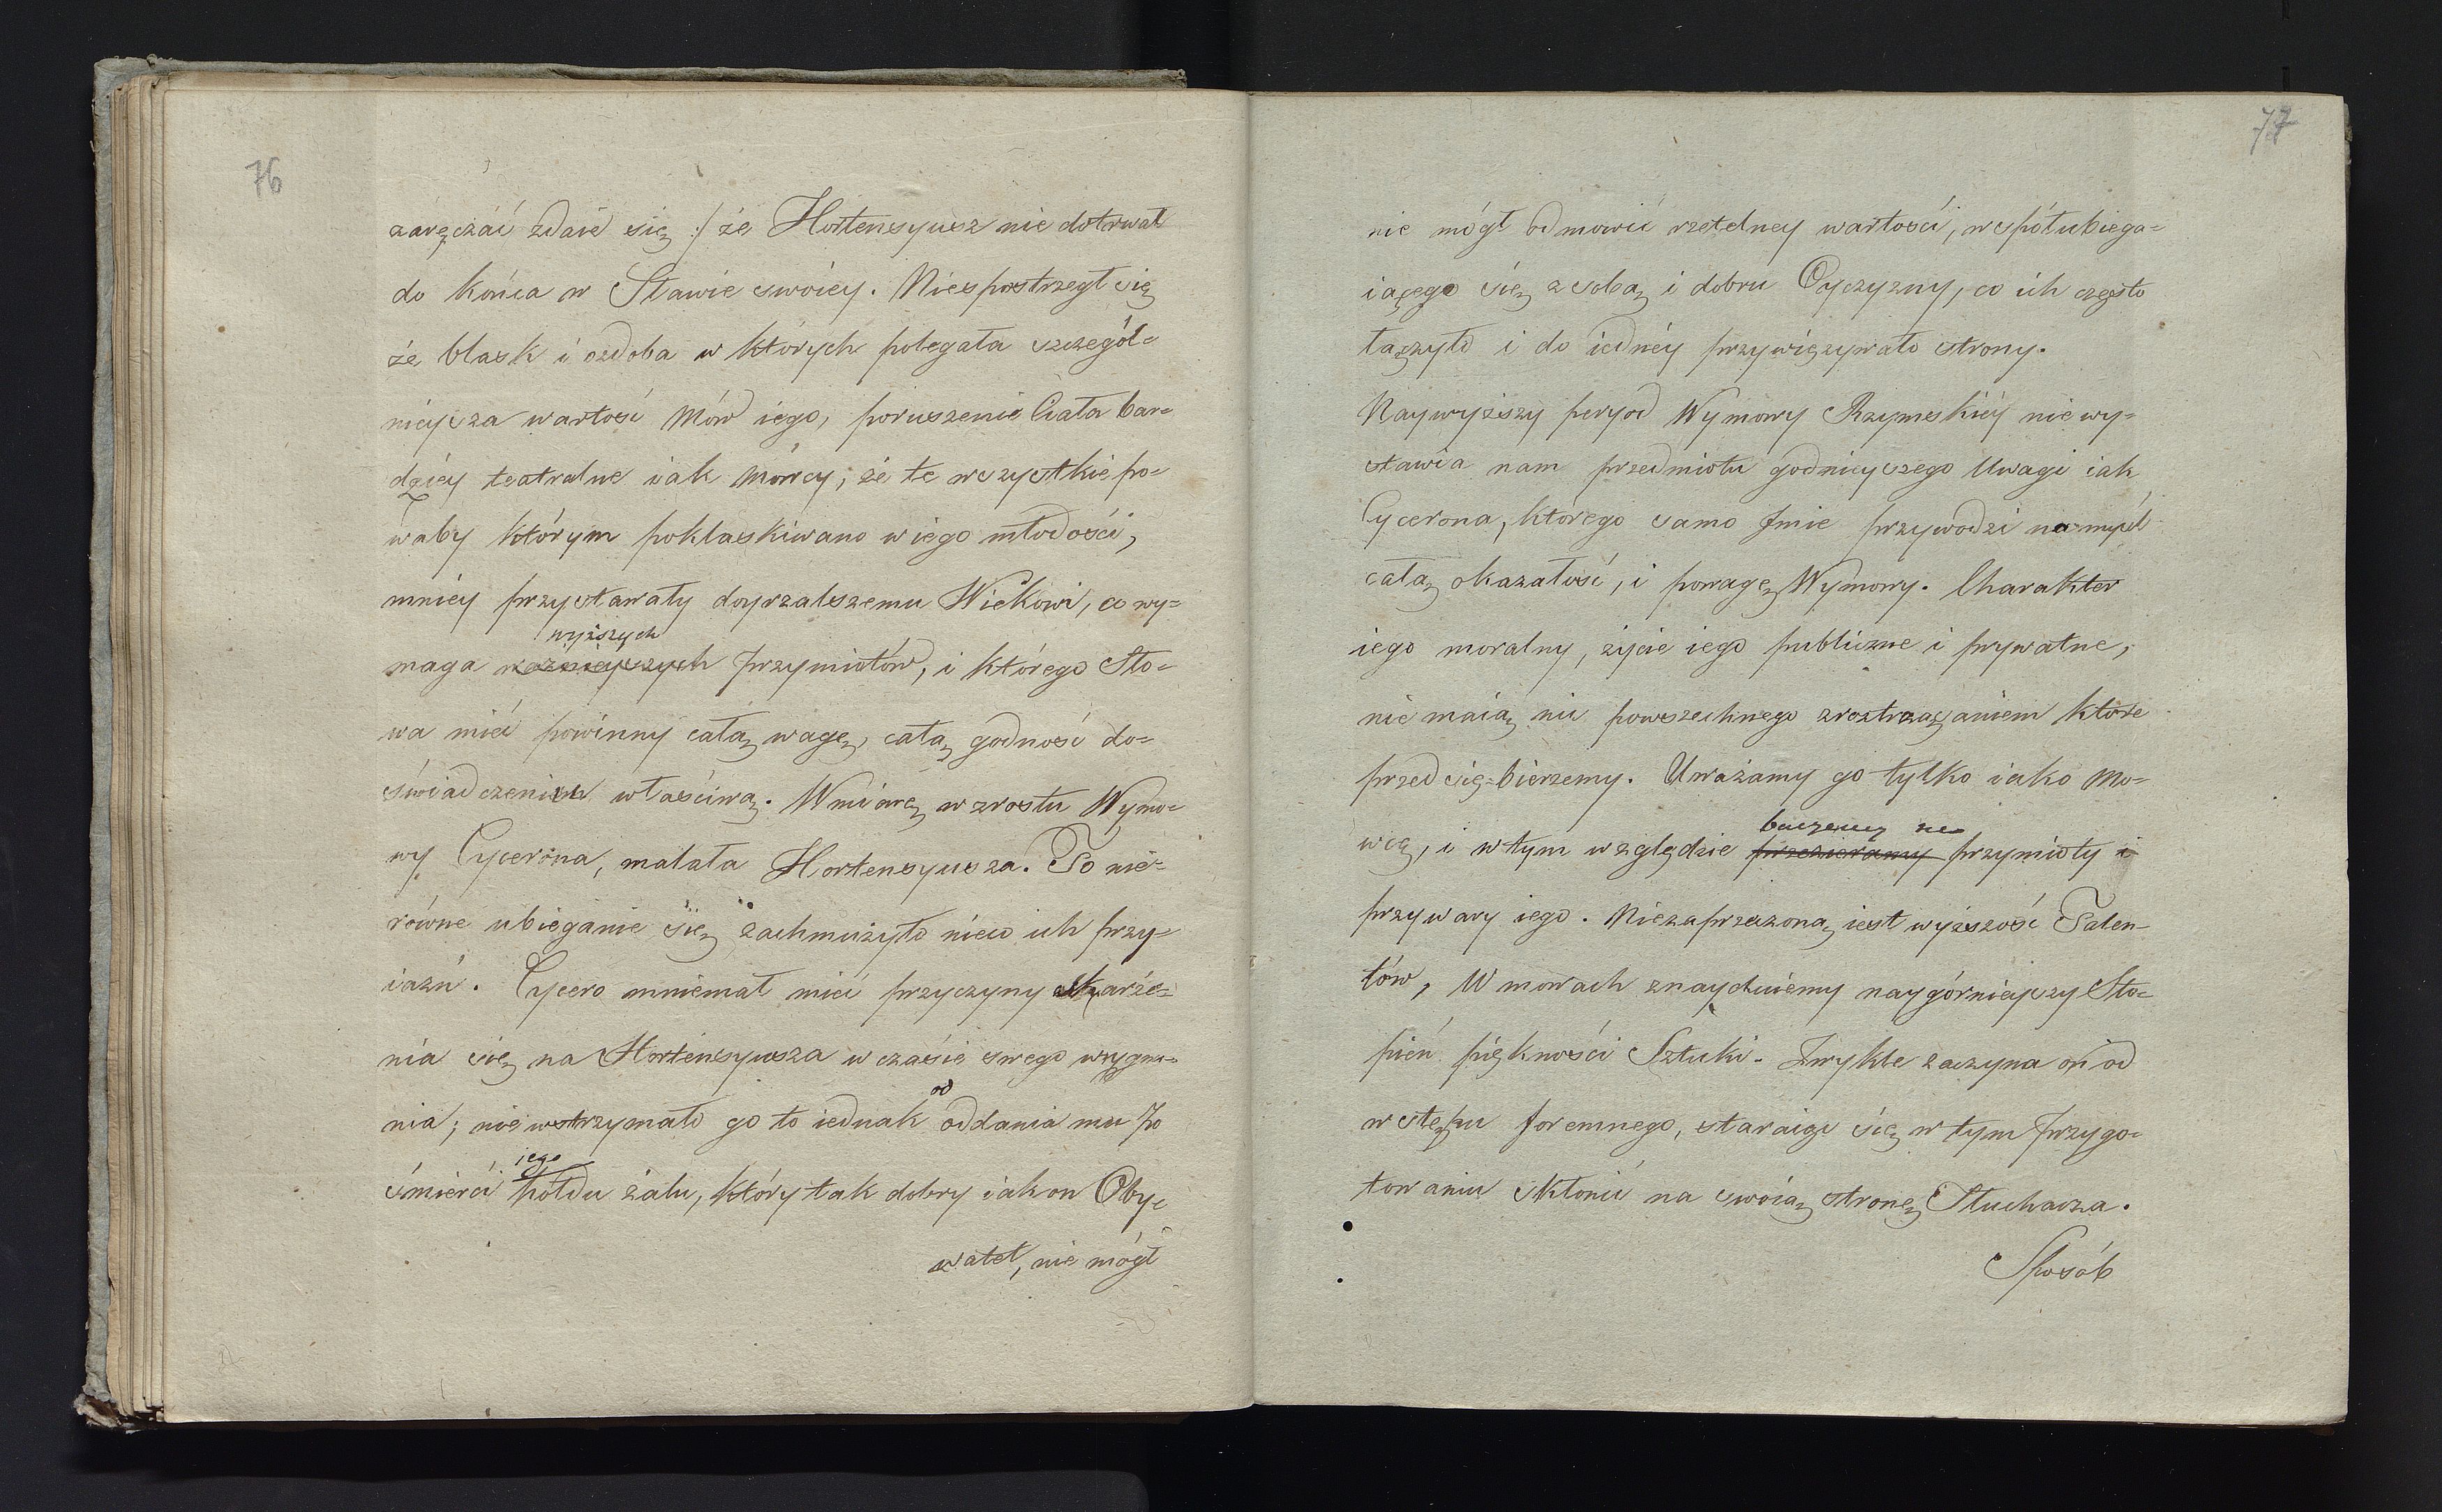 76
zaręczać zdaie się :/ że Hortensyusz nie dotrwał
do końca w Sławie swoiey. Niespostrzegł się
że blask i ozdoba w których polegała szczegól=
nieysza wartość Mów iego, poruszenie Ciała bar=
dziéy teatralne iak Mówcy; że te wszystkie po=
waby którym poklaskiwano w iego młodości,
mniey przystawały doyrzalszemu Wiekowi, co wy=
wyższych
maga ważnieyszych przymiotów, i którego Sło=
wa mieć powinny całą wagę, całą godność do=
świadczeniu właściwą. W miarę wzrostu Wymo=
wy Cycerona, malała Hortensyusza. To nie=
równe ubieganie się zachmurzyło nieco ich przy=
iaźń. Cycero mniemał mieć przyczyny skarże=
nia się na Hortensyusza w czasie swego wygna=
nia; nie wstrzymało go to iednak od oddania mu po
śmierci iego hołdu żalu, który tak dobry iak on Oby=
watel, nie mógł
77
nie mógł odmowić rzetelney wartości, współubiega=
iącego się z sobą i dobru Oyczyzny, co ich często
łączyło i do iednéy przywięzywało strony.
Naywyższy peryod Wymowy Rzymskiéy nie wy=
stawia nam przedmiotu godnieyszego Uwagi iak
Cycerona, którego samo Imie przywodzi na myśl
całą okazałość, i powagę Wymowy. Charakter
iego moralny, życie iego publiczne i prywatne,
nie maią nic powszechnego z roztrząsaniem które
przedsię=bierzemy. Uważamy go tylko iako Mo=
baczemy na
wcę, i w tym względzie przezieramy przymioty i
przywary iego. Niezaprzeczoną iest wyższość Talen=
tów, W mowach znayduiemy naygórnieyszy Sto=
pień piękności Sztuki. Zwykle zaczyna on od
wstępu foremnego, staraiąc się w tym przygo=
towaniu skłonić na swoią stronę Słuchacza.
Sposób